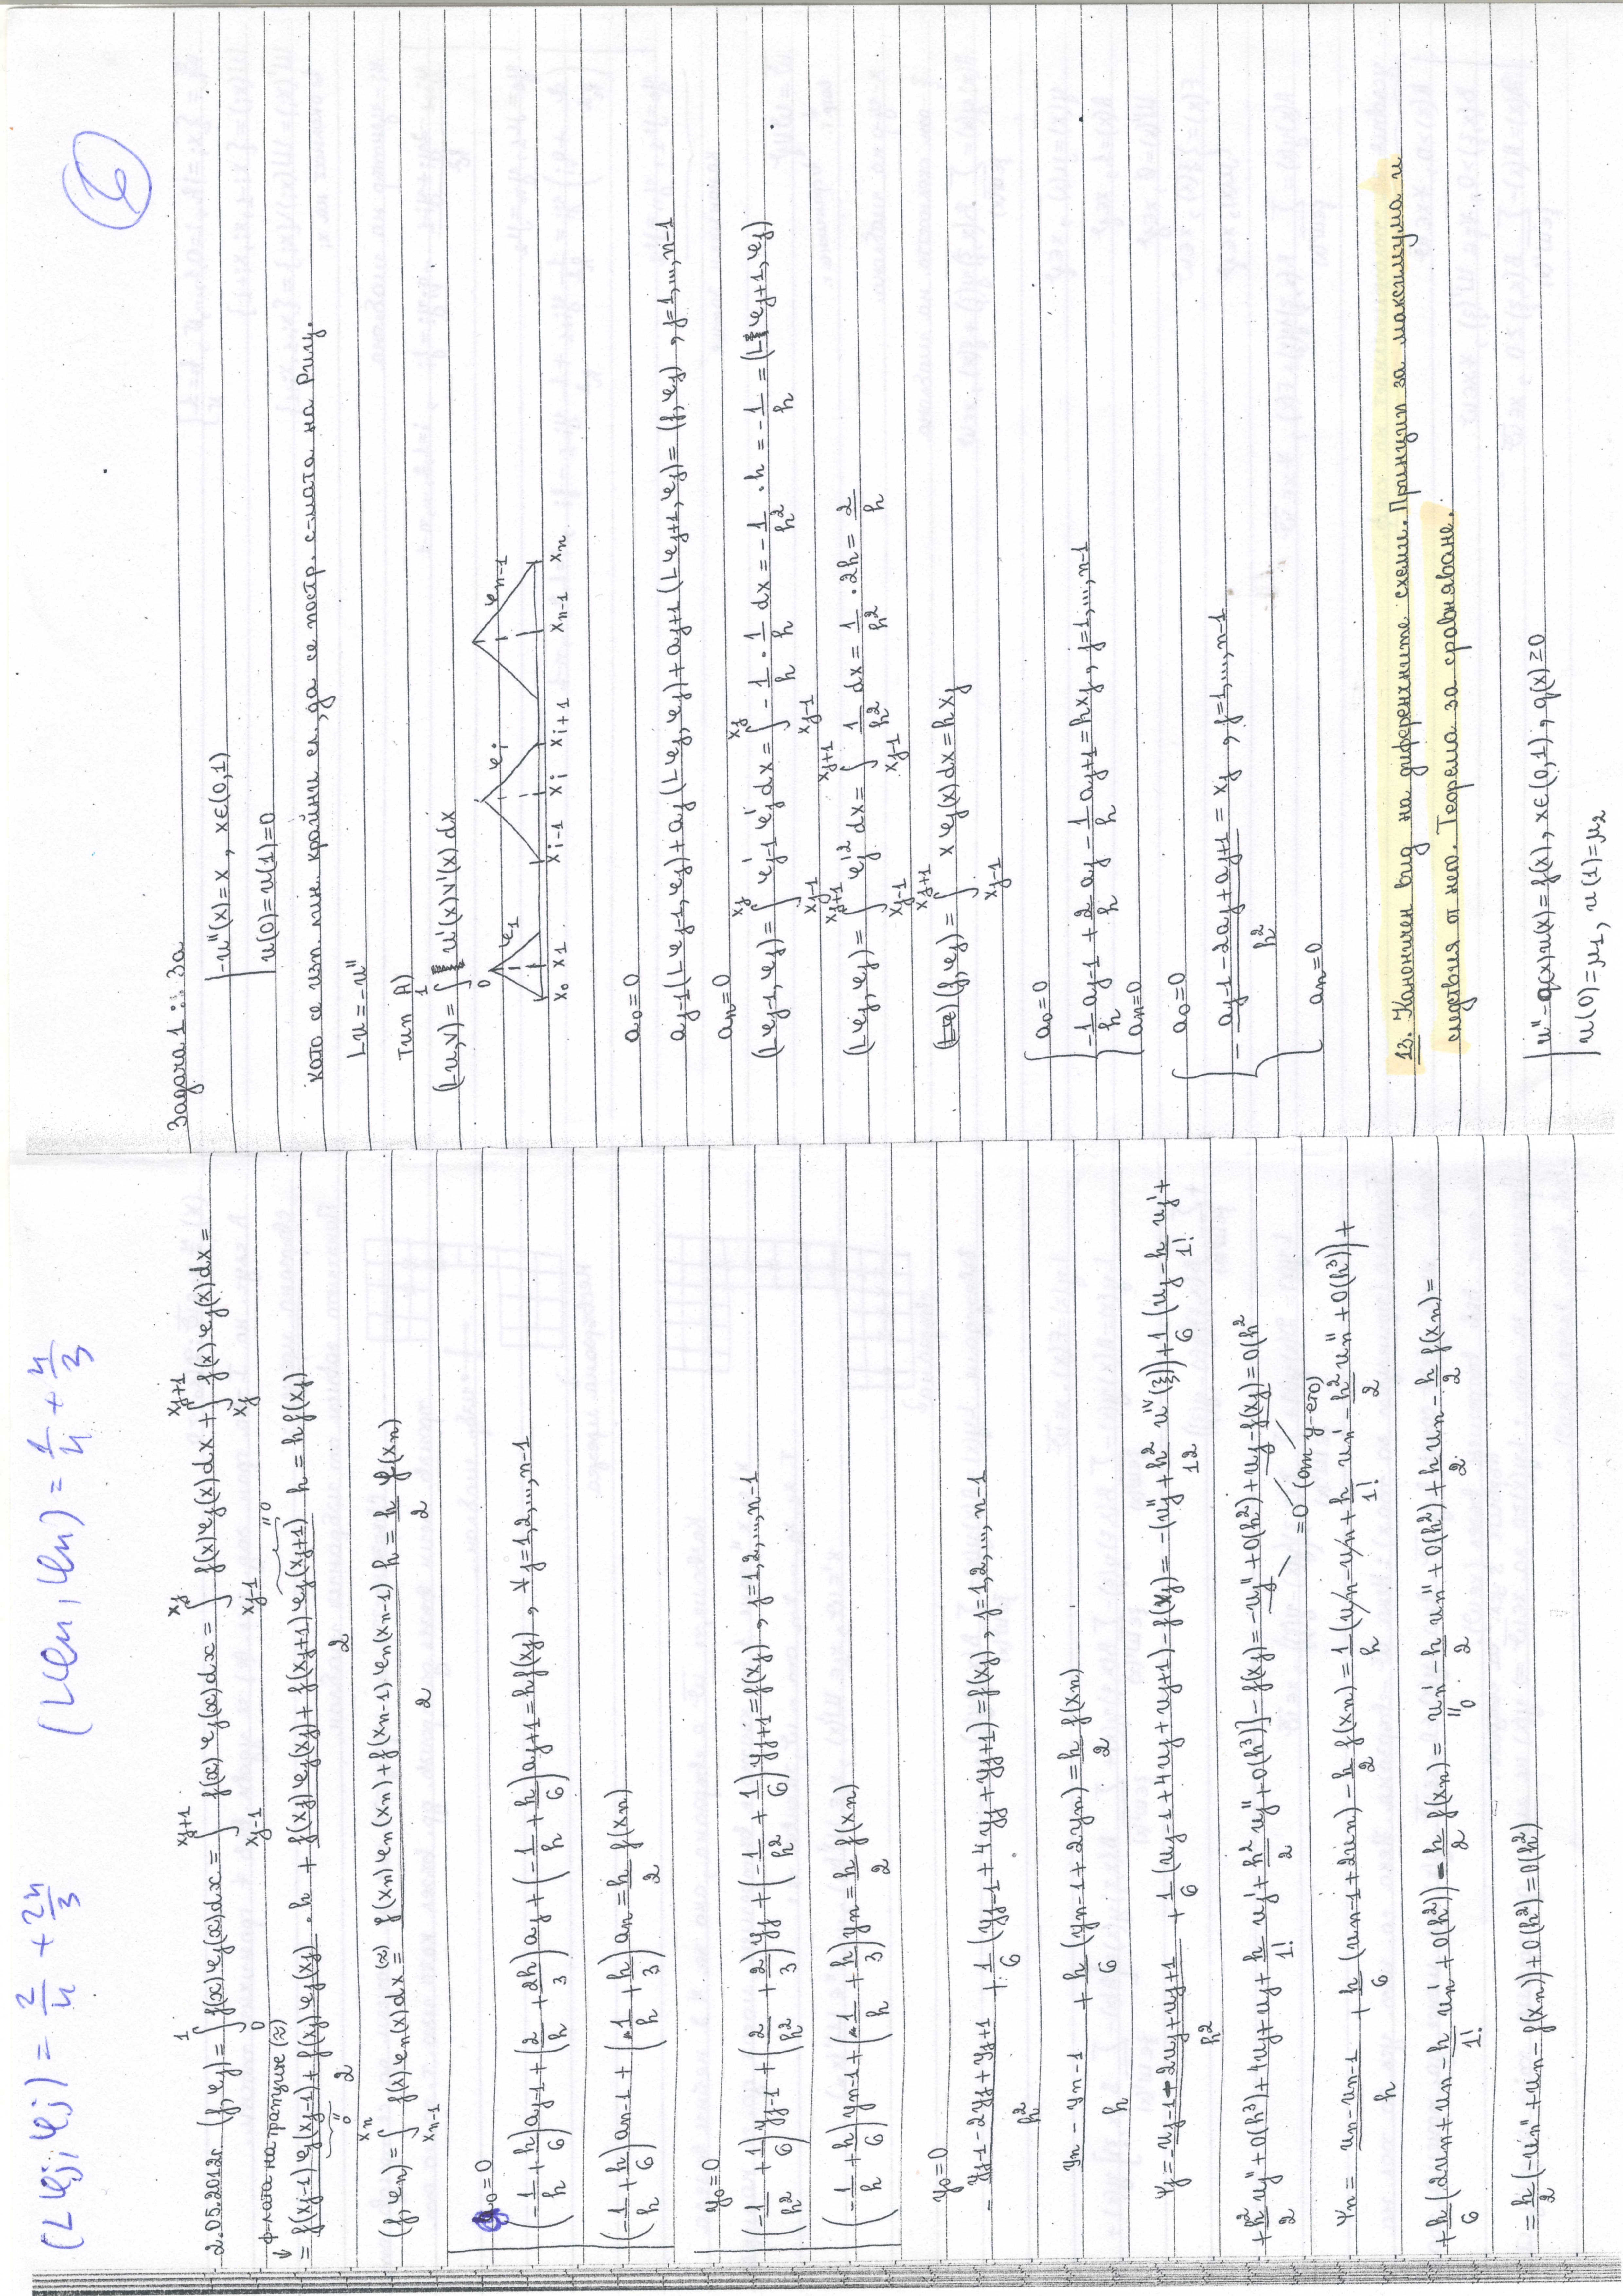 (Lφj, φj) = 2/h + 2h/3     (Lφn, φn) = 1/h + h/3
2.05.2012г. (f,φj) = ∫₀¹ f(x)φj(x)dx = ∫_{xj-1}^{xj+1} f(x)φj(x)dx = ∫_{xj-1}^{xj} f(x)φj(x)dx + ∫_{xj}^{xj+1} f(x)φj(x)dx =
↓ ф-лата на трапците (≈)
= (f(xj-1)φj(xj-1) + f(xj)φj(xj))/2 · h + (f(xj)φj(xj) + f(xj+1)φj(xj+1))/2 h = h f(xj)
"0     "0
(f,φn) = ∫_{xn-1}^{xn} f(x)φn(x)dx (≈)= (f(xn)φn(xn) + f(xn-1)φn(xn-1))/2 h = h/2 f(xn)
a0=0
(-1/h + h/6)aj-1 + (2/h + 2h/3)aj + (-1/h + h/6)aj+1 = hf(xj), ∀j=1,2,...,n-1
(-1/h + h/6)an-1 + (1/h + h/3)an = h/2 f(xn)
y0=0
(-1/h² + 1/6)yj-1 + (2/h² + 2/3)yj + (-1/h² + 1/6)yj+1 = f(xj), j=1,2,...,n-1
(-1/h + h/6)yn-1 + (1/h + h/3)yn = h/2 f(xn)
y0=0
- (yj-1 - 2yj + yj+1)/h² + 1/6 (yj-1 + 4yj + yj+1) = f(xj), j=1,2,...,n-1
(yn - yn-1)/h + h/6 (yn-1 + 2yn) = h/2 f(xn)
Ψj = - (uj-1 - 2uj + uj+1)/h² + 1/6 (uj-1 + 4uj + uj+1) - f(xj) = -(uj'' + h²/12 u^IV(ξ)) + 1/6 (uj - h/1! uj' +
+ h²/2 uj'' + O(h³) + 4uj + uj + h/1! uj' + h²/2 uj'' + O(h³)] - f(xj) = -uj'' + O(h²) + uj - f(xj) = O(h²
=0 (от у-ето)
Ψn = (un - un-1)/h + h/6 (un-1 + 2un) - h/2 f(xn) = 1/h (un - un + h/1! un' - h²/2 un'' + O(h³)) +
+ h/6 (2un + un - h/1! un' + O(h²)) - h/2 f(xn) = un' - h/2 un'' + O(h²) + h/2 un - h/2 f(xn) =
"0
= h/2 (-un'' + un - f(xn)) + O(h²) = O(h²)
6
Задача 1 : За
-u''(x) = x, x∈(0,1)
u(0)=u(1)=0
като се изп. лин. крайни ел., да се постр. с-мата на Риц.
Lu = -u''
Тип А)
(Lu,v) = ∫₀¹ u'(x)v'(x)dx
φ1   φi   φn-1
x0   x1   xi-1   xi   xi+1   xn-1   xn
a0=0
aj-1(Lφj-1,φj) + aj(Lφj,φj) + aj+1(Lφj+1,φj) = (f,φj), j=1,...,n-1
an=0
(Lφj-1,φj) = ∫_{xj-1}^{xj} φj-1'φj'dx = ∫_{xj-1}^{xj} -1/h · 1/h dx = -1/h² · h = -1/h = (Lφj+1,φj)
(Lφj,φj) = ∫_{xj-1}^{xj+1} φj'²dx = ∫_{xj-1}^{xj+1} 1/h² dx = 1/h² · 2h = 2/h
(f,φj) = ∫_{xj-1}^{xj+1} xφj(x)dx = hxj
a0=0
-1/h aj-1 + 2/h aj - 1/h aj+1 = hxj, j=1,...,n-1
an=0
a0=0
- (aj-1 - 2aj + aj+1)/h² = xj, j=1,...,n-1
an=0
13. Каноничен вид на диференчните схеми. Принцип за максимума и
следствия от него. Теорема за сравняване.
u'' - q(x)u(x) = f(x), x∈(0,1), q(x)≥0
u(0)=μ1, u(1)=μ2